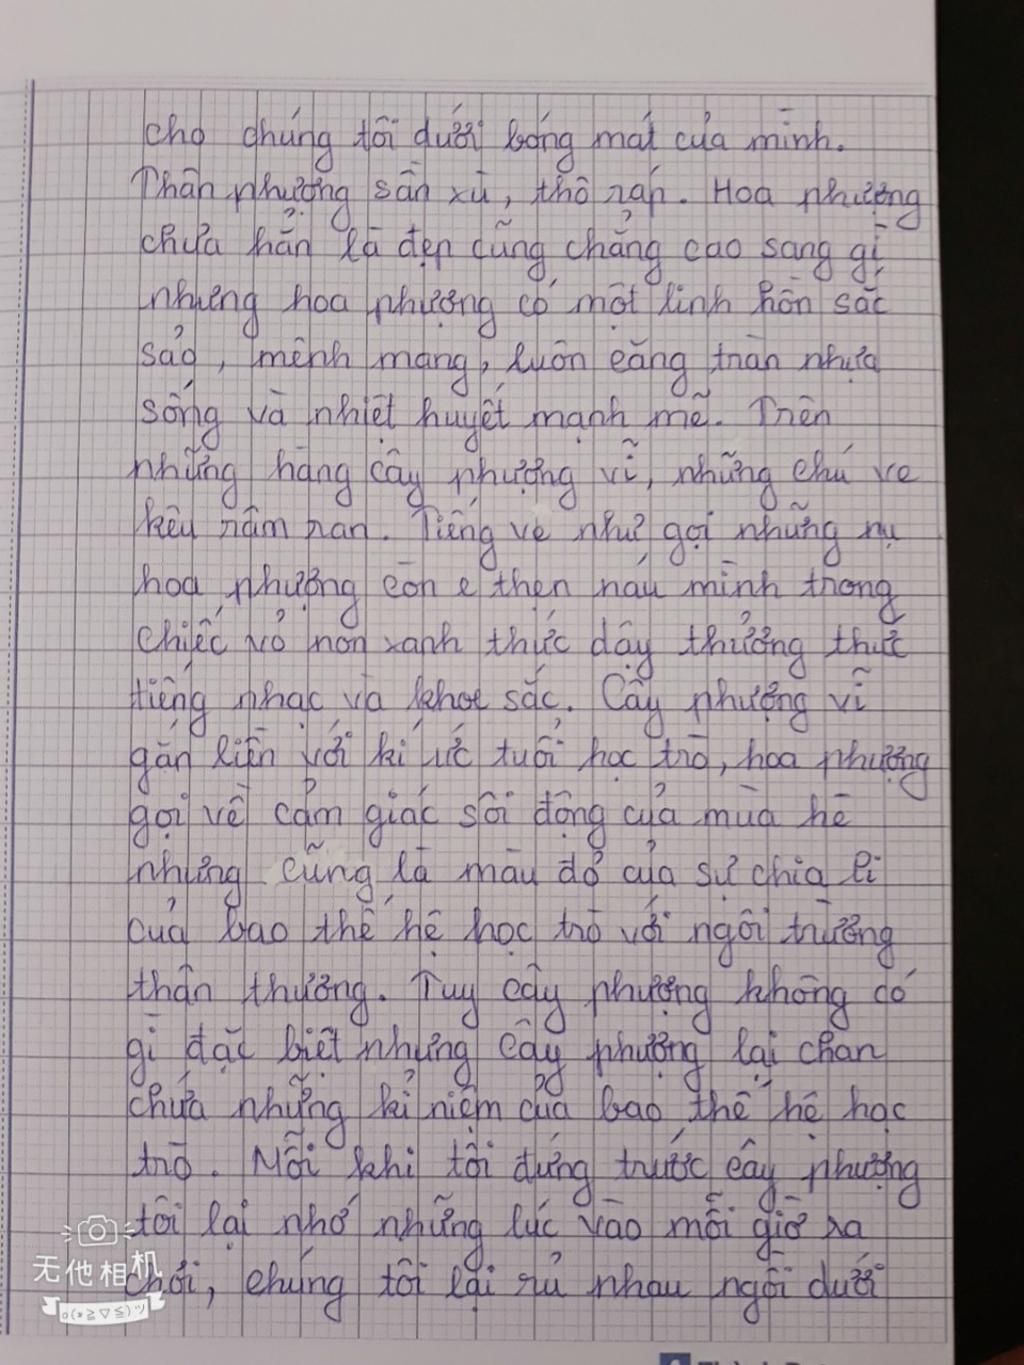 cho chúng tôi dưới bóng mát của mình.
Thân phượng sần xù, thô ráp. Hoa phượng
chưa hẳn là đẹp cũng chẳng cao sang gì
nhưng hoa phượng có một linh hồn sắc
sảo, mênh mang, luôn căng tràn nhựa
sống và nhiệt huyết mạnh mẽ. Trên
những hàng cây phượng vĩ, những chú ve
kêu râm ran. Tiếng ve như gọi những nụ
hoa phượng còn e thẹn náu mình trong
chiếc vỏ non xanh thức dậy thưởng thức
tiếng nhạc và khoe sắc. Cây phượng vĩ
gắn liền với kí ức tuổi học trò, hoa phượng
gọi về cảm giác sôi động của mùa hè
nhưng cũng là màu đỏ của sự chia li
của bao thế hệ học trò với ngôi trường
thân thương. Tuy cây phượng không có
gì đặc biệt nhưng cây phượng lại chan
chứa những kỉ niệm của bao thế hệ học
trò. Mỗi khi tôi đứng trước cây phượng
tôi lại nhớ những lúc vào mỗi giờ ra
chơi, chúng tôi lại rủ nhau ngồi dưới
无他相机
o(*≧▽≦)ツ